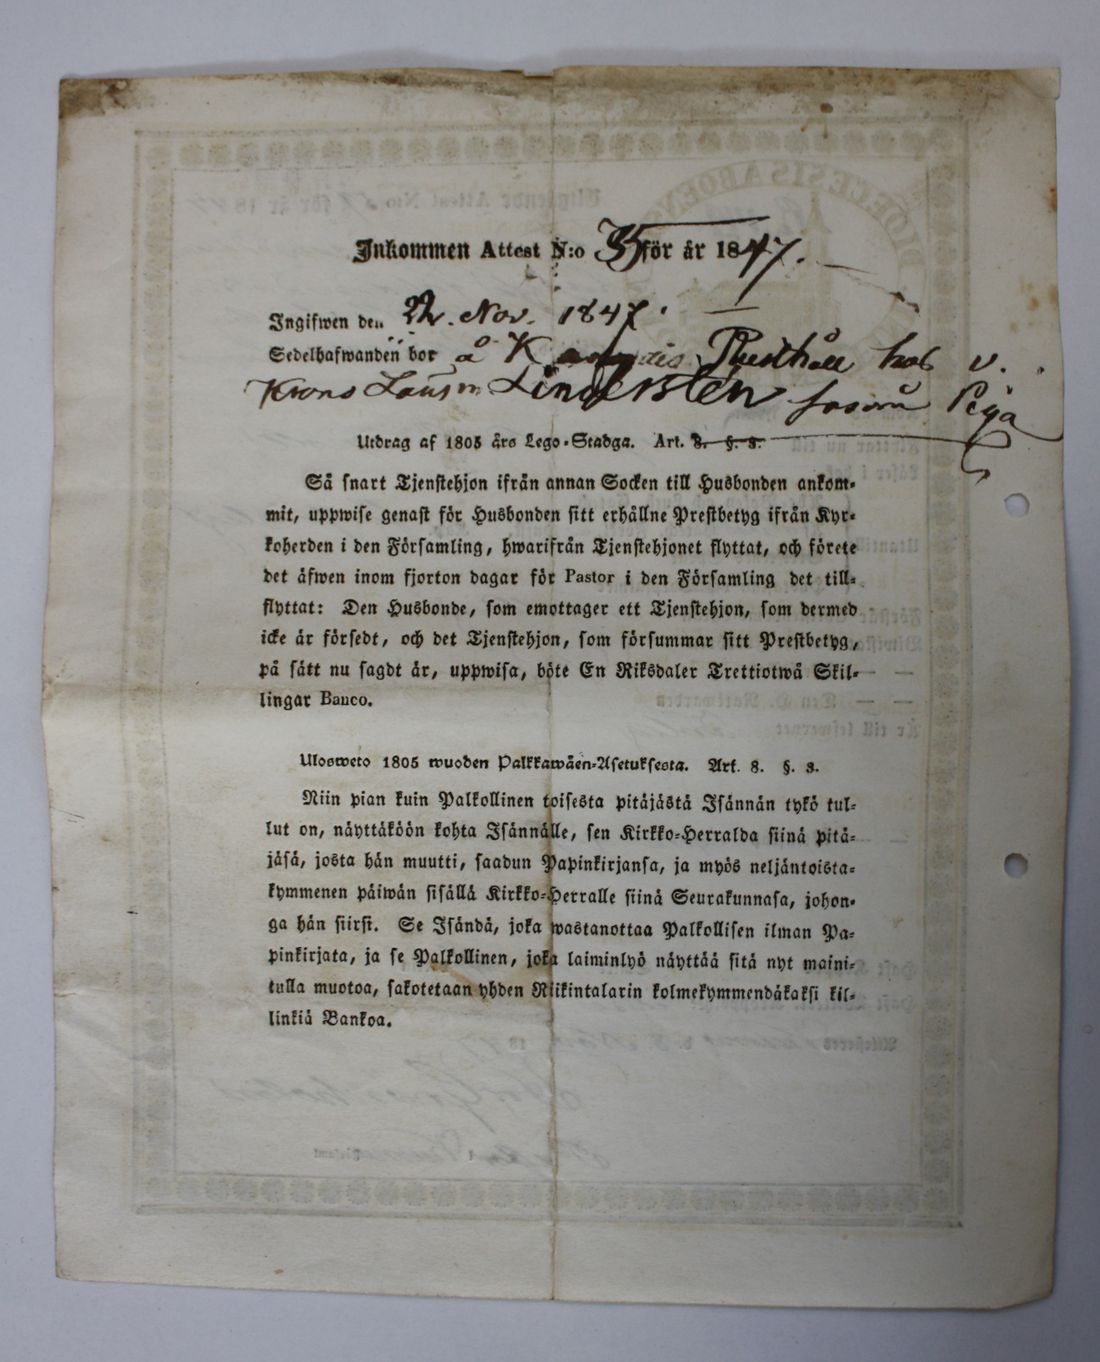 Inkommen Attest N:o 35 för år 1847.
Ingifwen den 22. Nov. 1847.
Sedelhafwanden bor å Rusthåll hos v.
Krono Länsm Lindersten såsom Piga
Utdrag af 1805 års Lego-Stadga. Art. 8. §. 3.
Så snart Tjenstehjon ifrån annan Socken till Husbonden ankom-
mit, uppwise genast för Husbonden sitt erhållne Prestbetyg ifrån Kyr-
koherden i den Församling, hwarifrån Tjenstehjonet flyttat, och förete
det äfwen inom fjorton dagar för Pastor i den Församling det till-
flyttat: Den Husbonde, som emottager ett Tjenstehjon, som dermed
icke är försedt, och det Tjenstehjon, som försummar sitt Prestbetyg,
på sätt nu sagdt är, uppwisa, böte En Riksdaler Trettiotwå Skil-
lingar Banco.
Ulosweto 1805 wuoden Palkkawäen-Asetuksesta. Art. 8. §. 3.
Niin pian kuin Palkollinen toisesta pitäjästä Isännän tykö tul-
lut on, näyttäköön kohta Isännälle, sen Kirkko-Herralda siinä pitä-
jäsä, josta hän muutti, saadun Papinkirjansa, ja myös neljäntoista-
kymmenen päiwän sisällä Kirkko-Herralle siinä Seurakunnasa, johon-
ga hän siirsi. Se Isändä, joka wastanottaa Palkollisen ilman Pa-
pinkirjata, ja se Palkollinen, joka laiminlyö näyttää sitä nyt maini-
tulla muotoa, sakotetaan yhden Riikintalarin kolmekymmendäkaksi kil-
linkiä Bankoa.